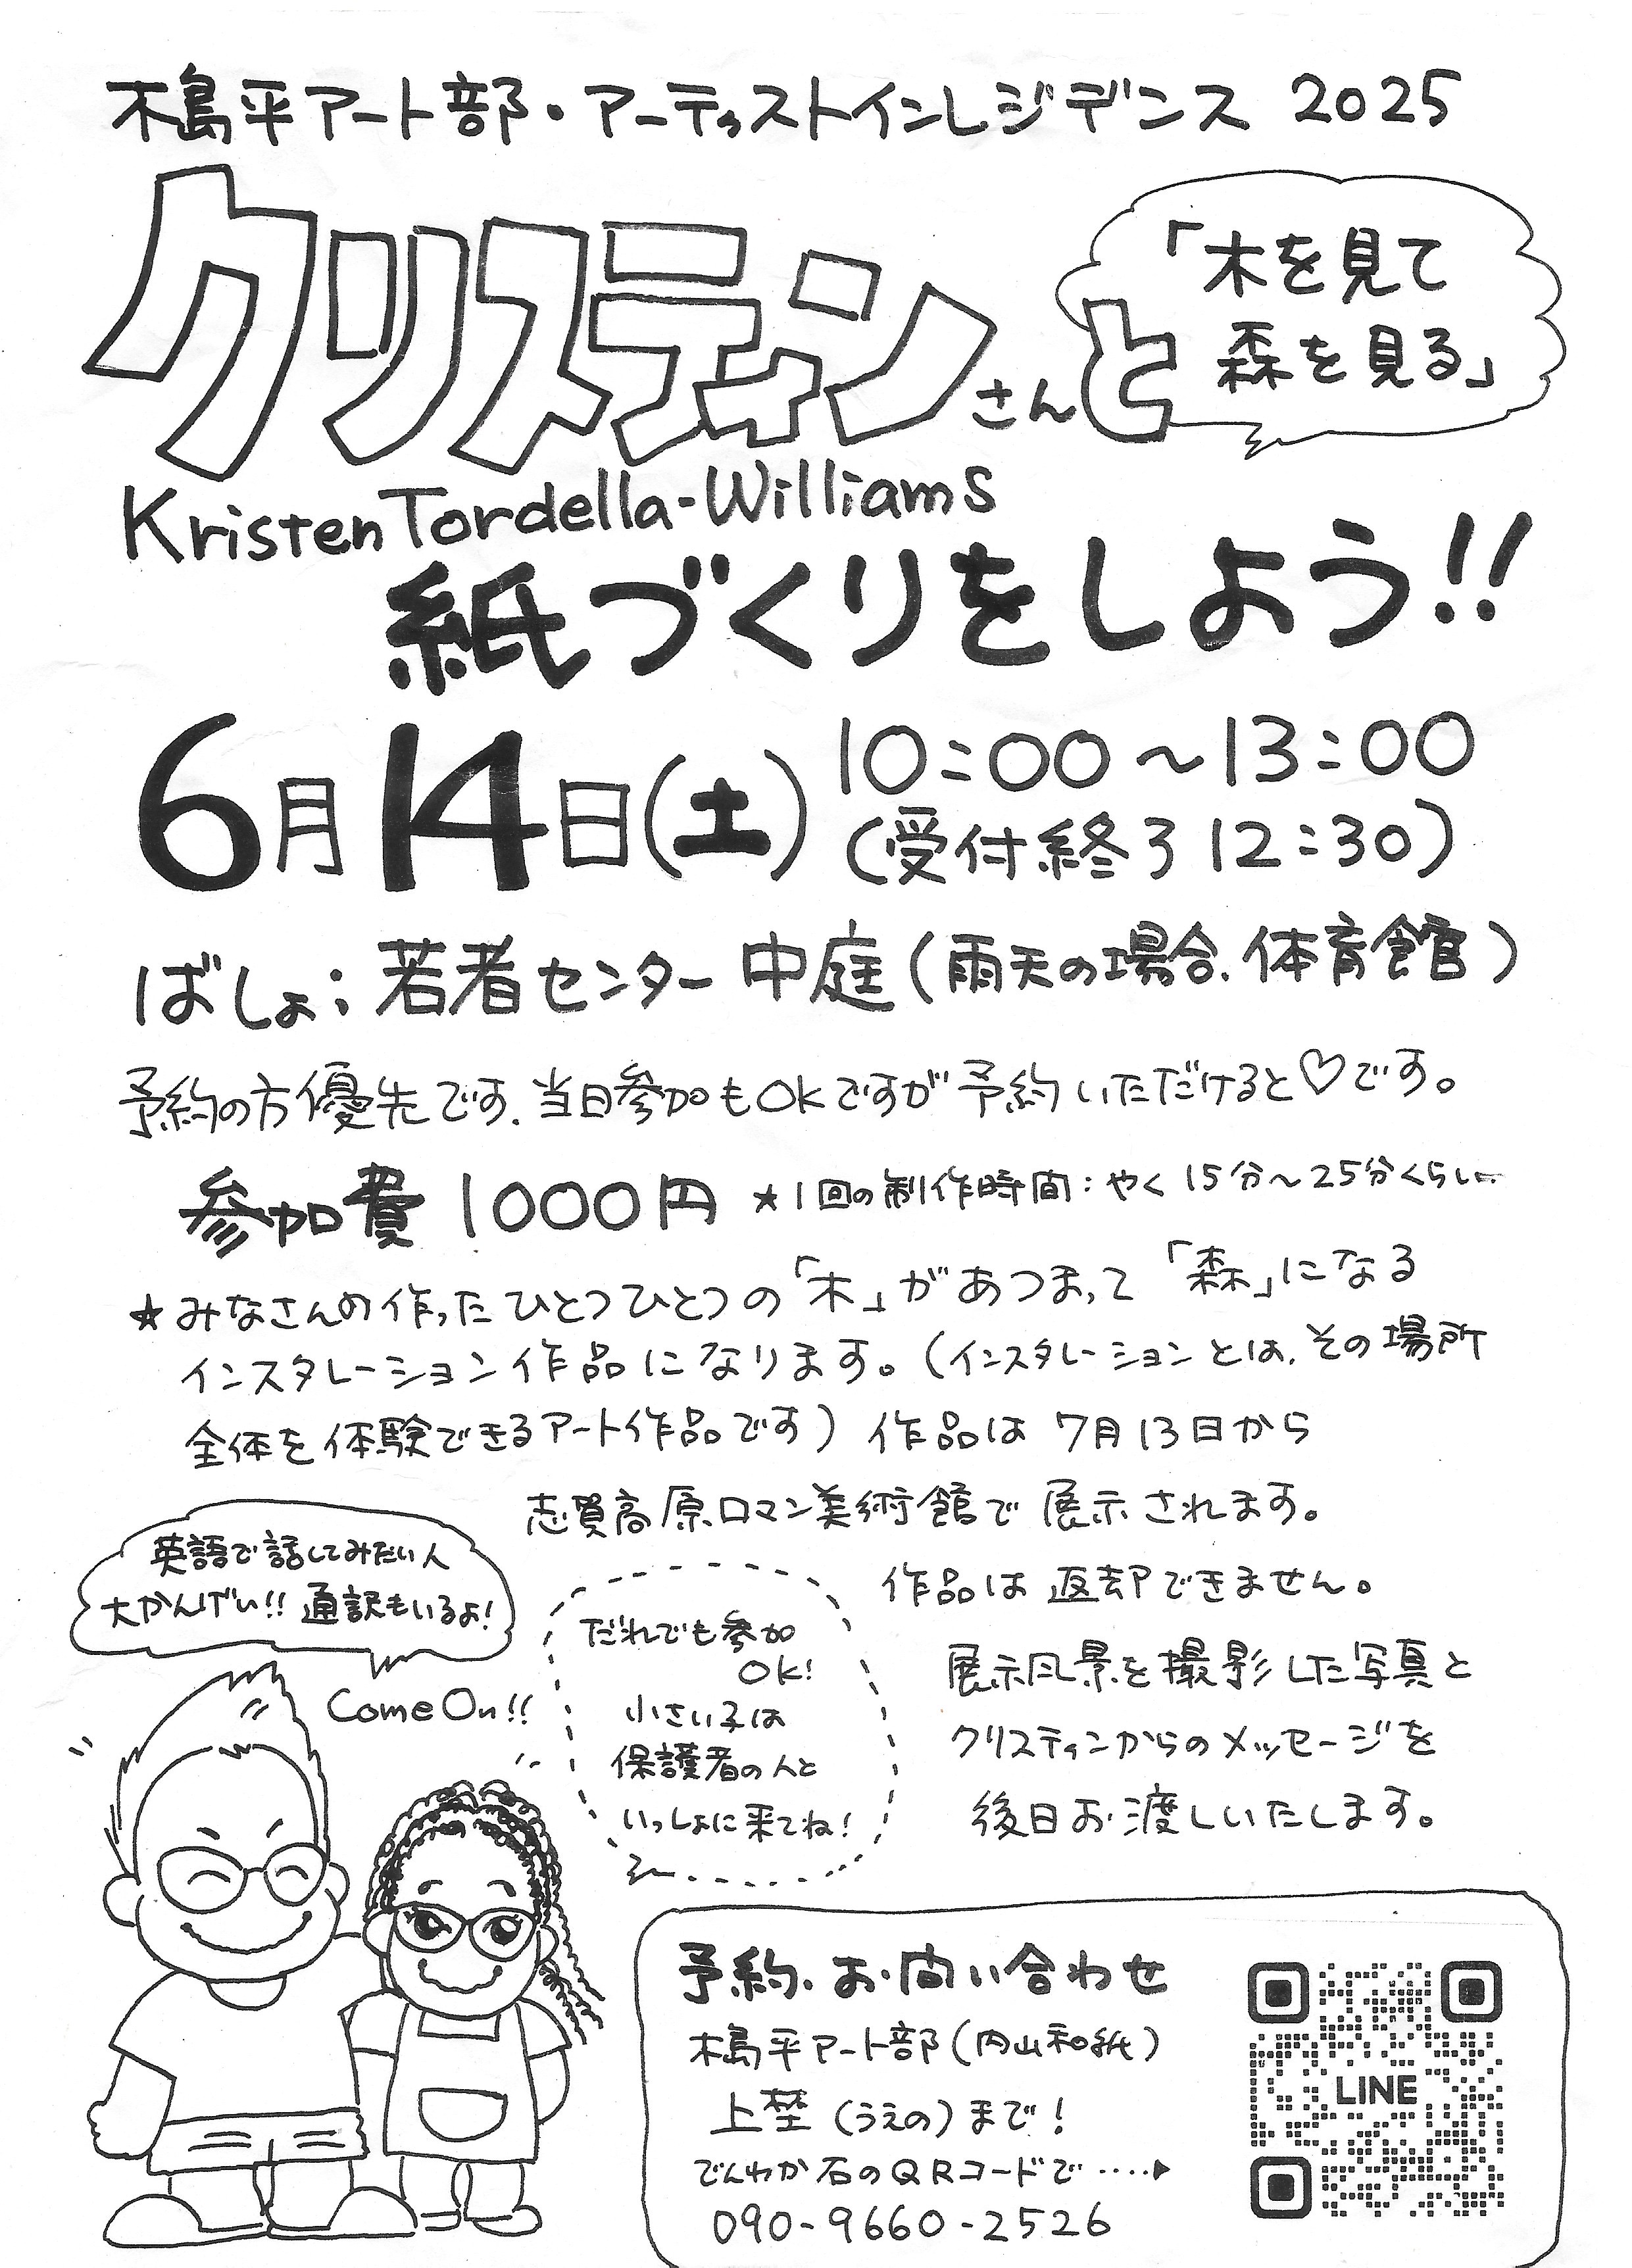 木島平アート部・アーティストインレジデンス 2025
クリスティンさんと
「木を見て
森を見る」
Kristen Tordella-Williams
紙づくりをしよう!!
6月14日(土) 10:00〜13:00
(受付終了 12:30)
ばしょ：若者センター 中庭(雨天の場合、体育館)
予約の方優先です。当日参加もOKですが予約いただけると♡です。
参加費 1000円 ★1回の制作時間：やく 15分〜25分くらい
★みなさんの作ったひとつひとつの「木」があつまって「森」になる
インスタレーション作品になります。(インスタレーションとは、その場所
全体を体験できるアート作品です) 作品は 7月13日から
志賀高原ロマン美術館で 展示されます。
作品は 返却できません。
展示風景を撮影した写真と
クリスティンからのメッセージを
後日お渡しいたします。
英語で話してみたい人
大かんげい!! 通訳もいるよ!
Come On!!
だれでも参加
OK!
小さい子は
保護者の人と
いっしょに来てね!
予約、お問い合わせ
木島平アート部(内山和紙)
上埜(うえの)まで!
でんわか右のQRコードで‥‥▶
090-9660-2526
LINE